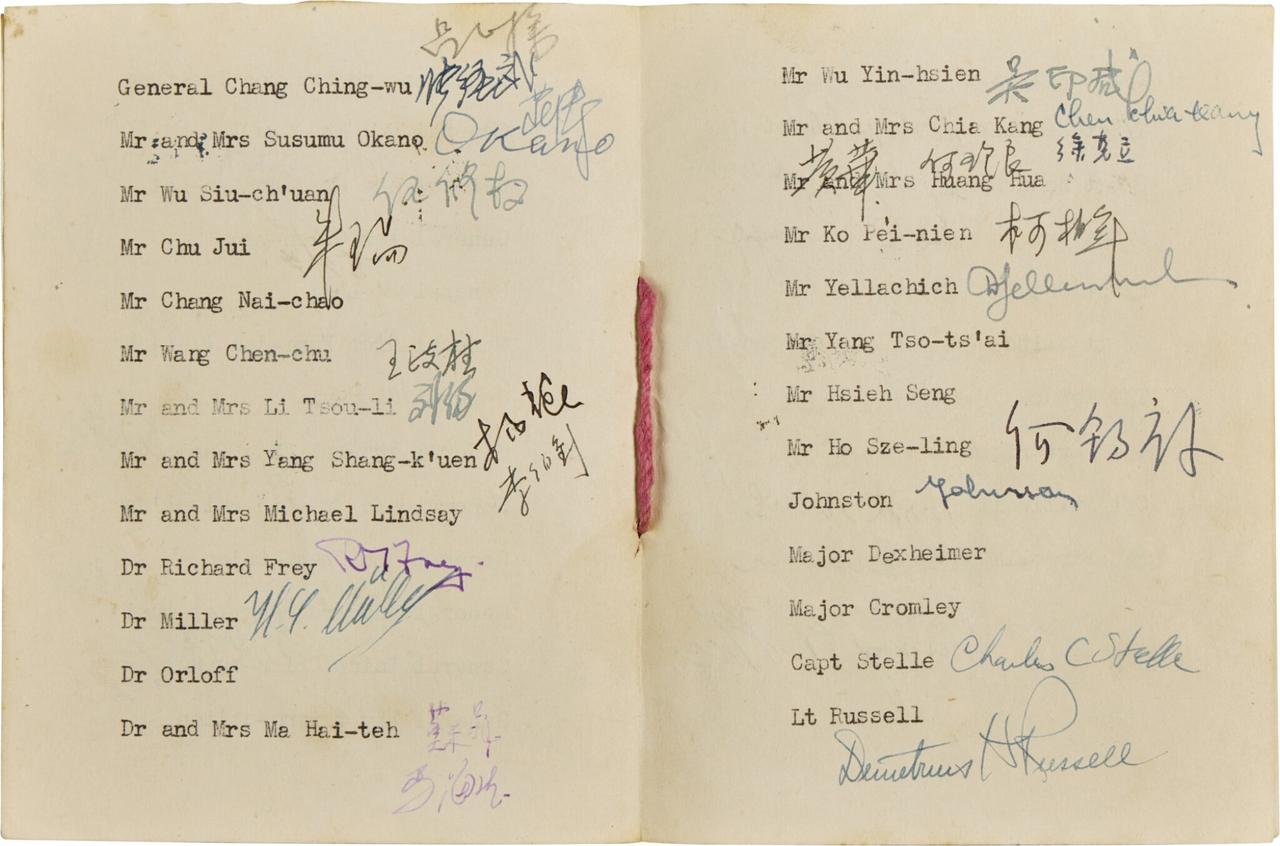 General Chang Ching-wu
Mr and Mrs Susumu Okano Okano
Mr Wu Siu-ch'uan 伍修权
Mr Chu Jui 朱瑞
Mr Chang Nai-chao
Mr Wang Chen-chu
Mr and Mrs Li Tsou-li
Mr and Mrs Yang Shang-k'uen
李伯釗
Mr and Mrs Michael Lindsay
Dr Richard Frey R Frey.
Dr Miller
Dr Orloff
Dr and Mrs Ma Hai-teh 蘇菲
马海德
Mr Wu Yin-hsien 吴印咸
Mr and Mrs Chia Kang Chen Chia-kang
徐克立
黄華 何理良
Mr and Mrs Huang Hua
Mr Ko Pei-nien 柯柏年
Mr Yellachich
Mr Yang Tso-ts'ai
Mr Hsieh Seng
Mr Ho Sze-ling 何錫麟
Johnston
Major Dexheimer
Major Cromley
Capt Stelle Charles C Stelle
Lt Russell
Demetrius H Russell